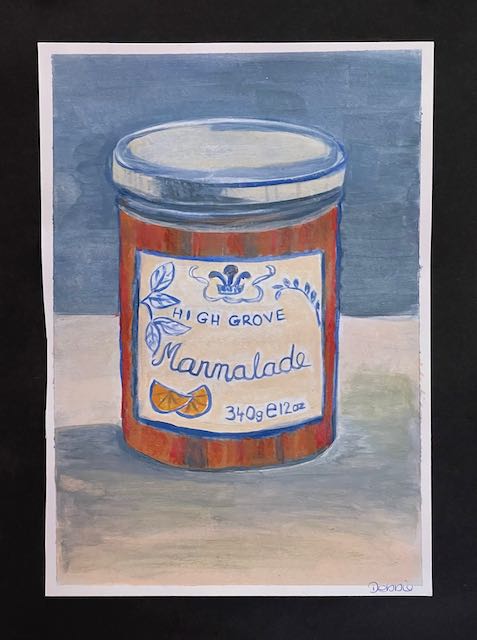 HIGH GROVE
Marmalade
340g e 12oz